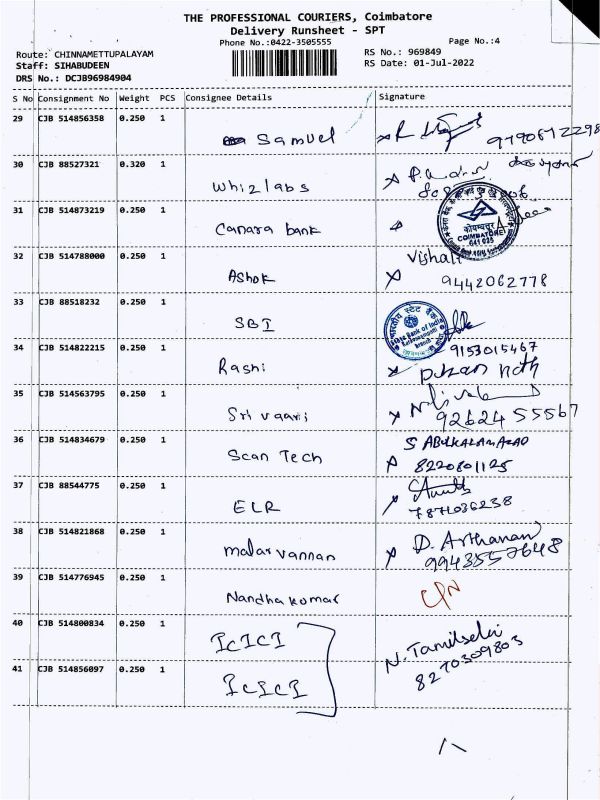 THE PROFESSIONAL COURIERS, Coimbatore
Delivery Runsheet - SPT
Phone No.:0422-3505555
Page No.:4
Route: CHINNAMETTUPALAYAM
RS No.: 969849
Staff: SIHABUDEEN
RS Date: 01-Jul-2022
DRS No.: DCJB96984904
S No Consignment No Weight PCS Consignee Details Signature
29 CJB 514856358 0.250 1
Samuel
30 CJB 88527321 0.320 1
Whizlabs
31 CJB 514873219 0.250 1
Canara bank
COIMBATORE
641 025
32 CJB 514788000 0.250 1 Vishali
Ashok 9442062778
33 CJB 88518232 0.250 1
SBI
State Bank of India
34 CJB 514822215 0.250 1 9153015467
Rashi
35 CJB 514563795 0.250 1
Sri vaari 92624 55567
36 CJB 514834679 0.250 1 S ABULKALAM AZAD
Scan Tech 8220801125
37 CJB 88544775 0.250 1
ELR 7871036238
38 CJB 514821868 0.250 1 D. Arthanari
malar vannan 9943557648
39 CJB 514776945 0.250 1
Nandhakumar
40 CJB 514800834 0.250 1
ICICI N. Tamilselvi
8270309803
41 CJB 514856097 0.250 1
ICICI